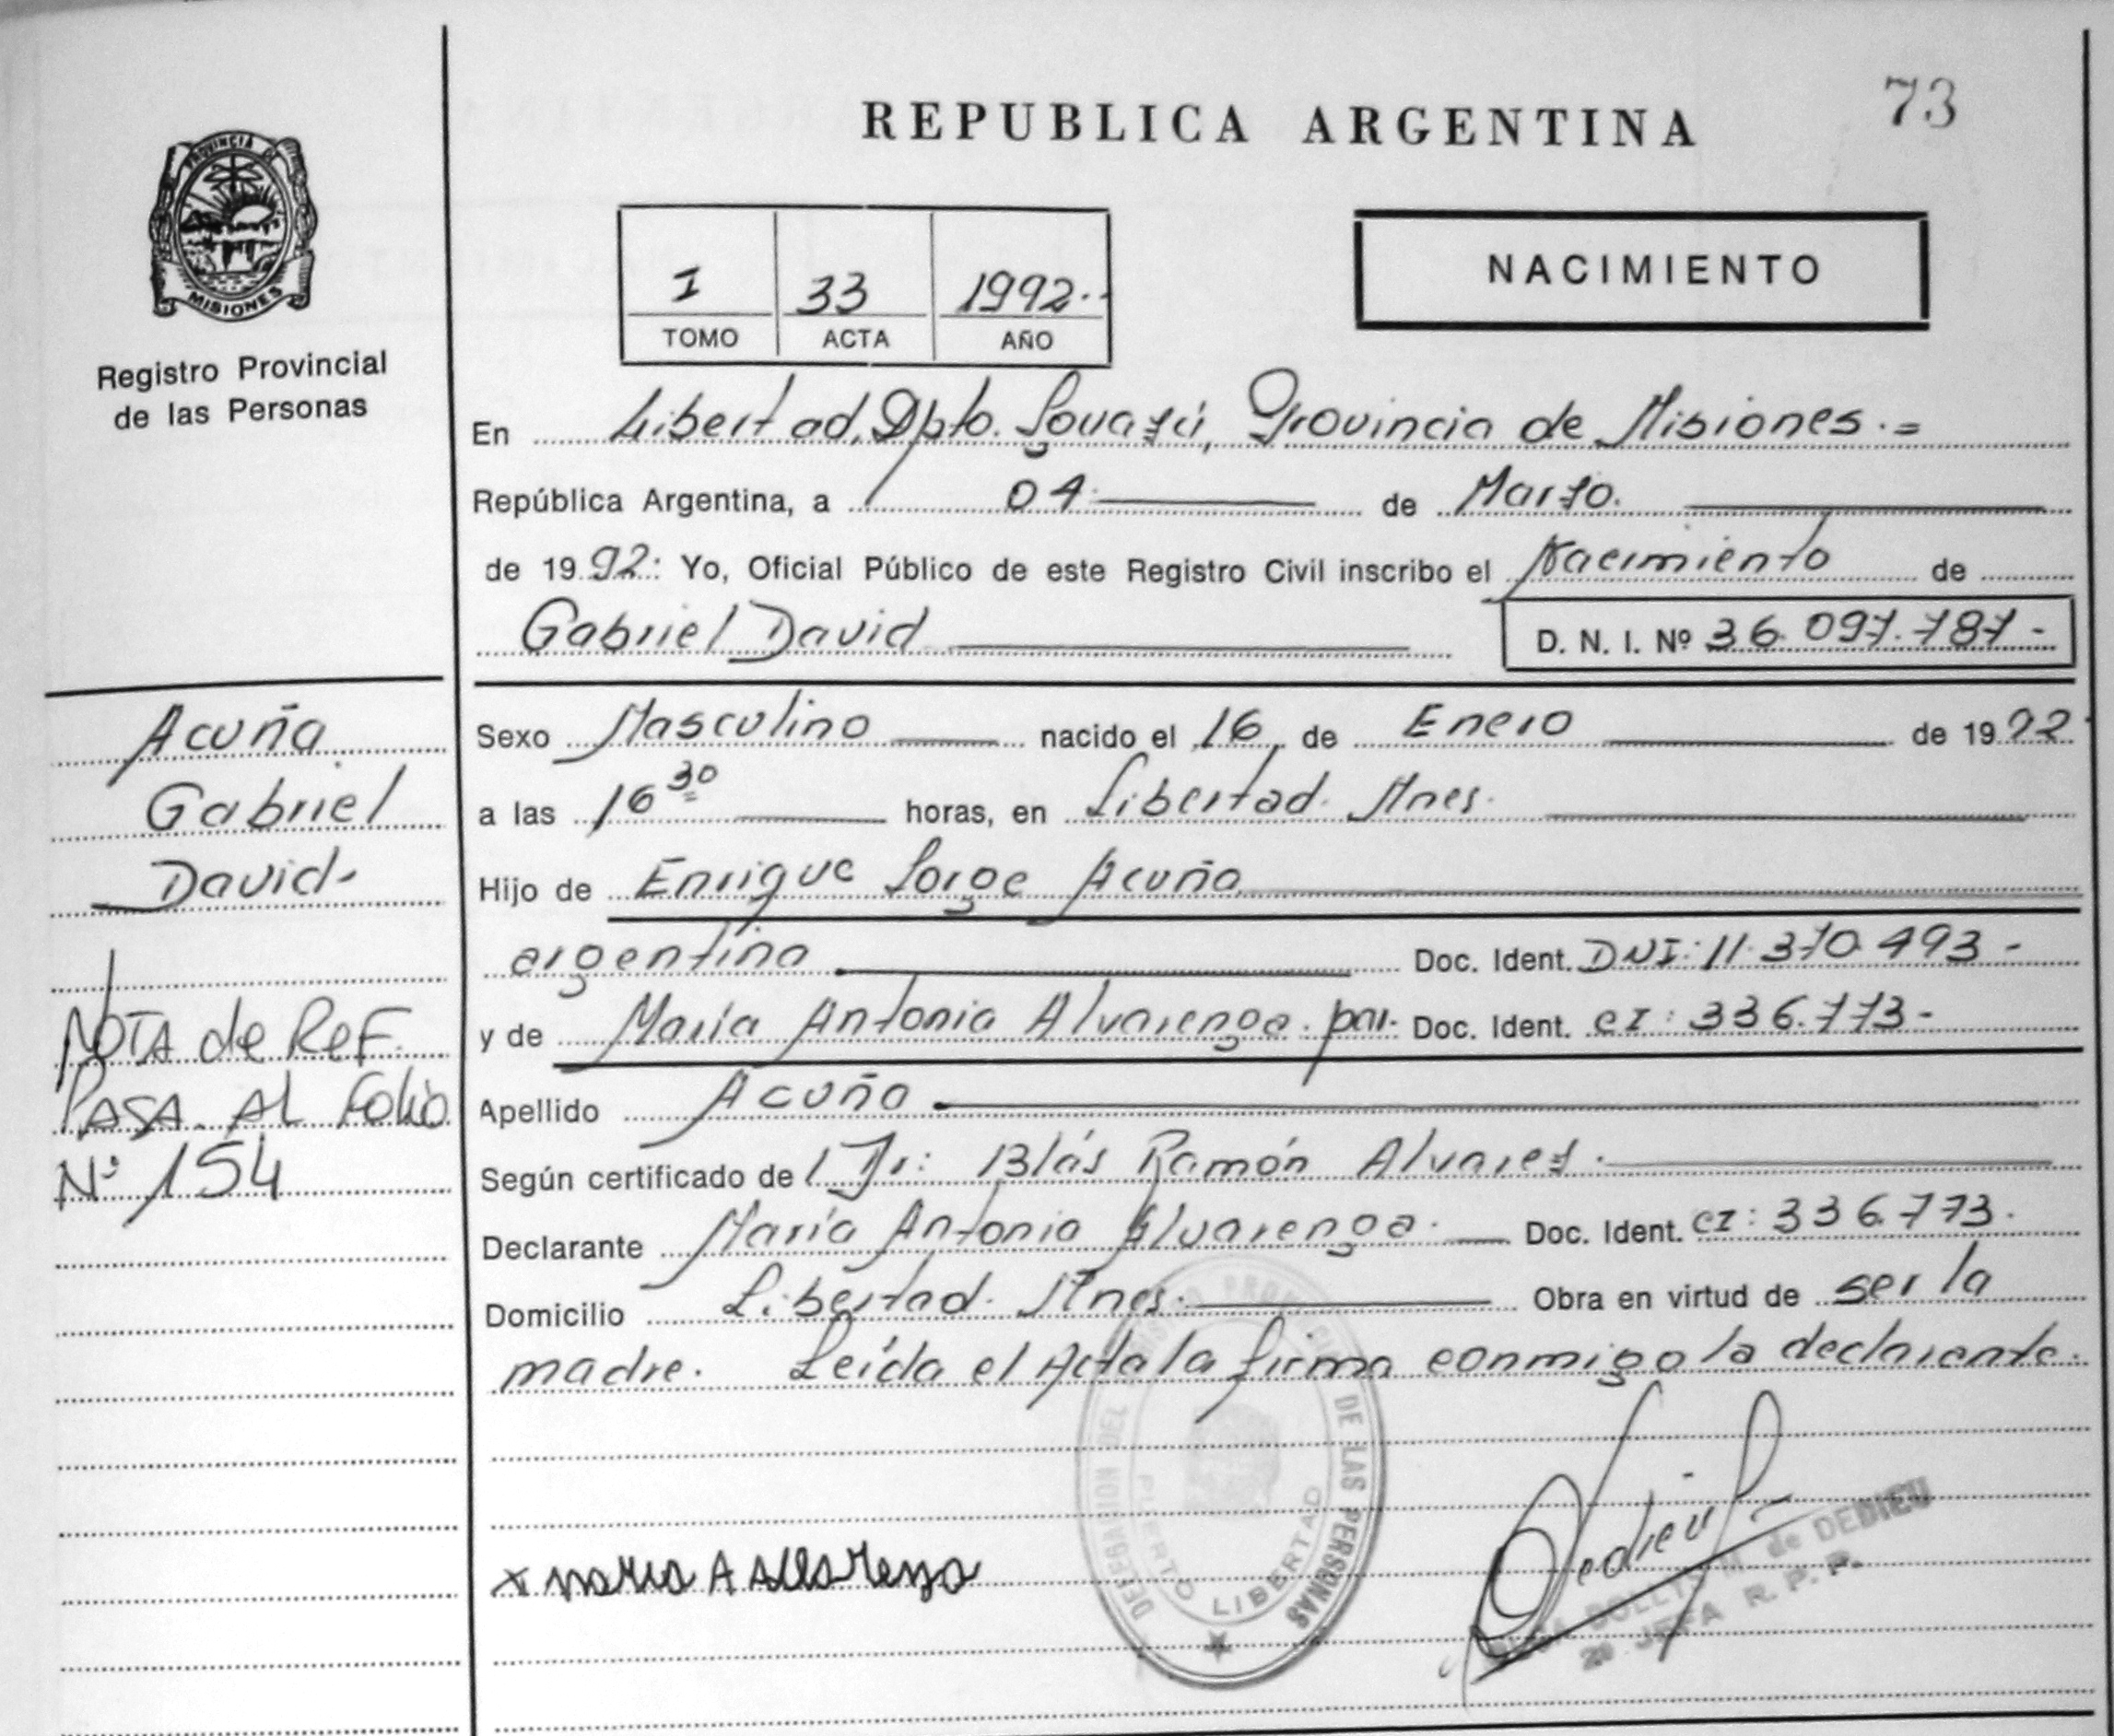 73
REPUBLICA ARGENTINA
PROVINCIA DE
MISIONES
Registro Provincial
de las Personas
I 33 1992
TOMO ACTA AÑO
NACIMIENTO
En Libertad, Dpto. Iguazú, Provincia de Misiones.=
República Argentina, a 04 de Marzo.
de 1992: Yo, Oficial Público de este Registro Civil inscribo el Nacimiento de
Gabriel David D. N. I. Nº 36.097.787-
Acuña
Gabriel
David-
Sexo Masculino nacido el 16 de Enero de 1992
a las 16 30 horas, en Libertad. Mnes.
Hijo de Enrique Jorge Acuña
argentina Doc. Ident. DNI: 11.370.493-
y de María Antonia Alvarenga. par. Doc. Ident. CI: 336.773-
Apellido Acuña
Según certificado de Dr: Blás Ramón Alvarez.
Declarante María Antonia Alvarenga. Doc. Ident. CI: 336.773.
Domicilio Libertad. Mnes. Obra en virtud de ser la
madre. Leída el Acta la firma conmigo la declarante.
NOTA de REF.
PASA AL Folio
Nº 154
DELEGACION DEL REGISTRO PROVINCIAL DE LAS PERSONAS
PUERTO LIBERTAD
x maria A
Dedieu
DOLLY M de DEDIEU
JEFA R. P. P.